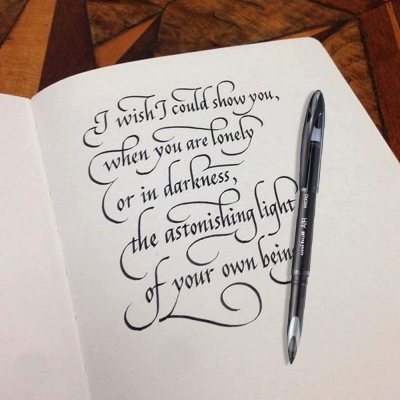 I wish I could show you,
when you are lonely
or in darkness,
the astonishing light
of your own being